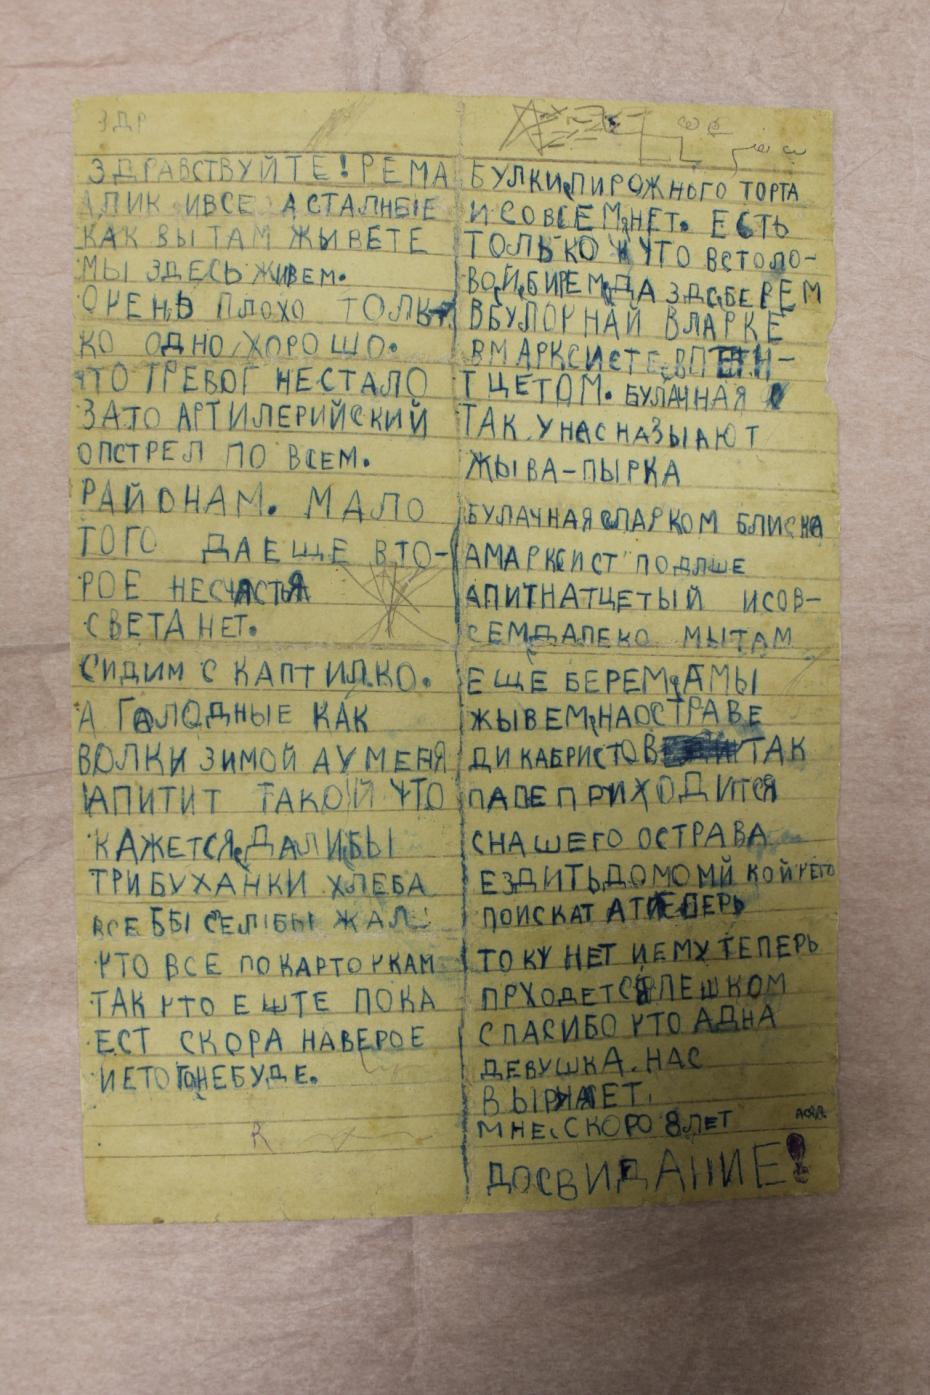 ЗДР
ЗДРАВСТВУЙТЕ! РЕМА
АЛИК ИВСЕ АСТАЛНЫЕ
КАК ВЫ ТАМ ЖЫВЕТЕ
МЫ ЗДЕСЬ ЖИВЕМ.
ОЧЕНЬ ПЛОХО ТОЛЬ
КО ОДНО ХОРОШО.
ЧТО ТРЕВОГ НЕСТАЛО
ЗАТО АРТИЛЕРИЙСКИЙ
ОПСТРЕЛ ПО ВСЕМ.
РАЙОНАМ. МАЛО
ТОГО ДАЕЩЕ ВТО-
РОЕ НЕСЧАСТЬЯ
СВЕТА НЕТ.
СИДИМ С КАПТИЛКО.
А ГОЛОДНЫЕ КАК
ВОЛКИ ЗИМОЙ АУМЕНЯ
АПИТИТ ТАКОЙ ЧТО
КАЖЕТСЯ, ДАЛИБЫ
ТРИ БУХАНКИ ХЛЕБА
ВСЕ БЫ СЕЛ БЫ ЖАЛ
ЧТО ВСЕ ПО КАРТОЧКАМ
ТАК ЧТО ЕШТЕ ПОКА
ЕСТ СКОРА НАВЕРОЕ
ИЕТОГО НЕБУДЕ.
БУЛКИ, ПИРОЖНОГО ТОРТА
И СОВСЕМ, НЕТ. ЕСТЬ
ТОЛЬКО ЧТО ВСТОЛО-
ВОЙ, БИРЕМ, ДА ЗДСБЕРЕМ
ВБУЛОЧНАЙ ВЛАРКЕ
ВМАРКСИСТЕ, ВПТН-
ТЦЕТОМ. БУЛАЧНАЯ
ТАК УНАС НАЗЫАЮТ
ЖЫВА-ПЫРКА
БУЛАЧНАЯ СЛАРКОМ БЛИСКА
АМАРКСИСТ ПОДЛШЕ
АПИТНАТЦЕТЫЙ ИСОВ-
СЕМ, ДАЛЕКО МЫ ТАМ
ЕЩЕ БЕРЕМ, АМЫ
ЖЫВЕМ, НАОСТРАВЕ
ДИКАБРИСТОВ ТАК
ПАПЕ ПРИХОДИТСЯ
СНАШЕГО ОСТРАВА
ЕЗДИТЬ, ДОМОМЙ КОЙЧЕГО
ПОИСКАТ АТЕПЕРЬ
ТОКУ НЕТ ИЕМУ ТЕПЕРЬ
ПРХОДЕТСЯ ПЕШКОМ
СПАСИБО ЧТО АДНА
ДЕВУШКА, НАС
ВЫРЧАЕТ.
МНЕ, СКОРО 8 ЛЕТ
ДОСВИДАНИЕ!